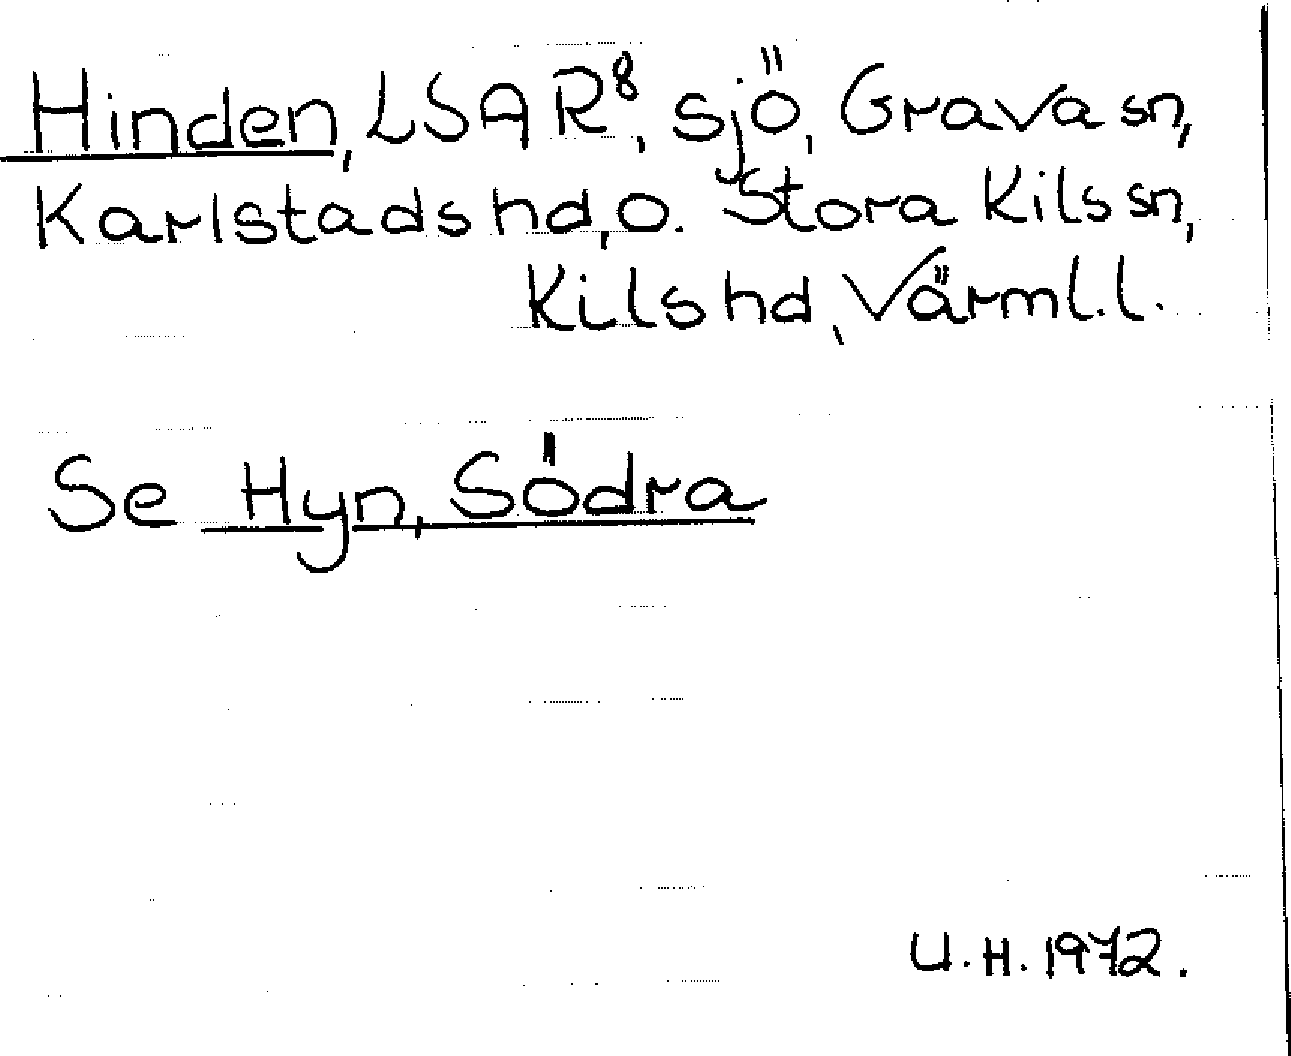 Hinden, LSAR⁸, sjö, Grava sn,
Karlstads hd, o. Stora Kils sn,
Kils hd, Värml. l.
Se Hyn, Södra
U.H. 1972.